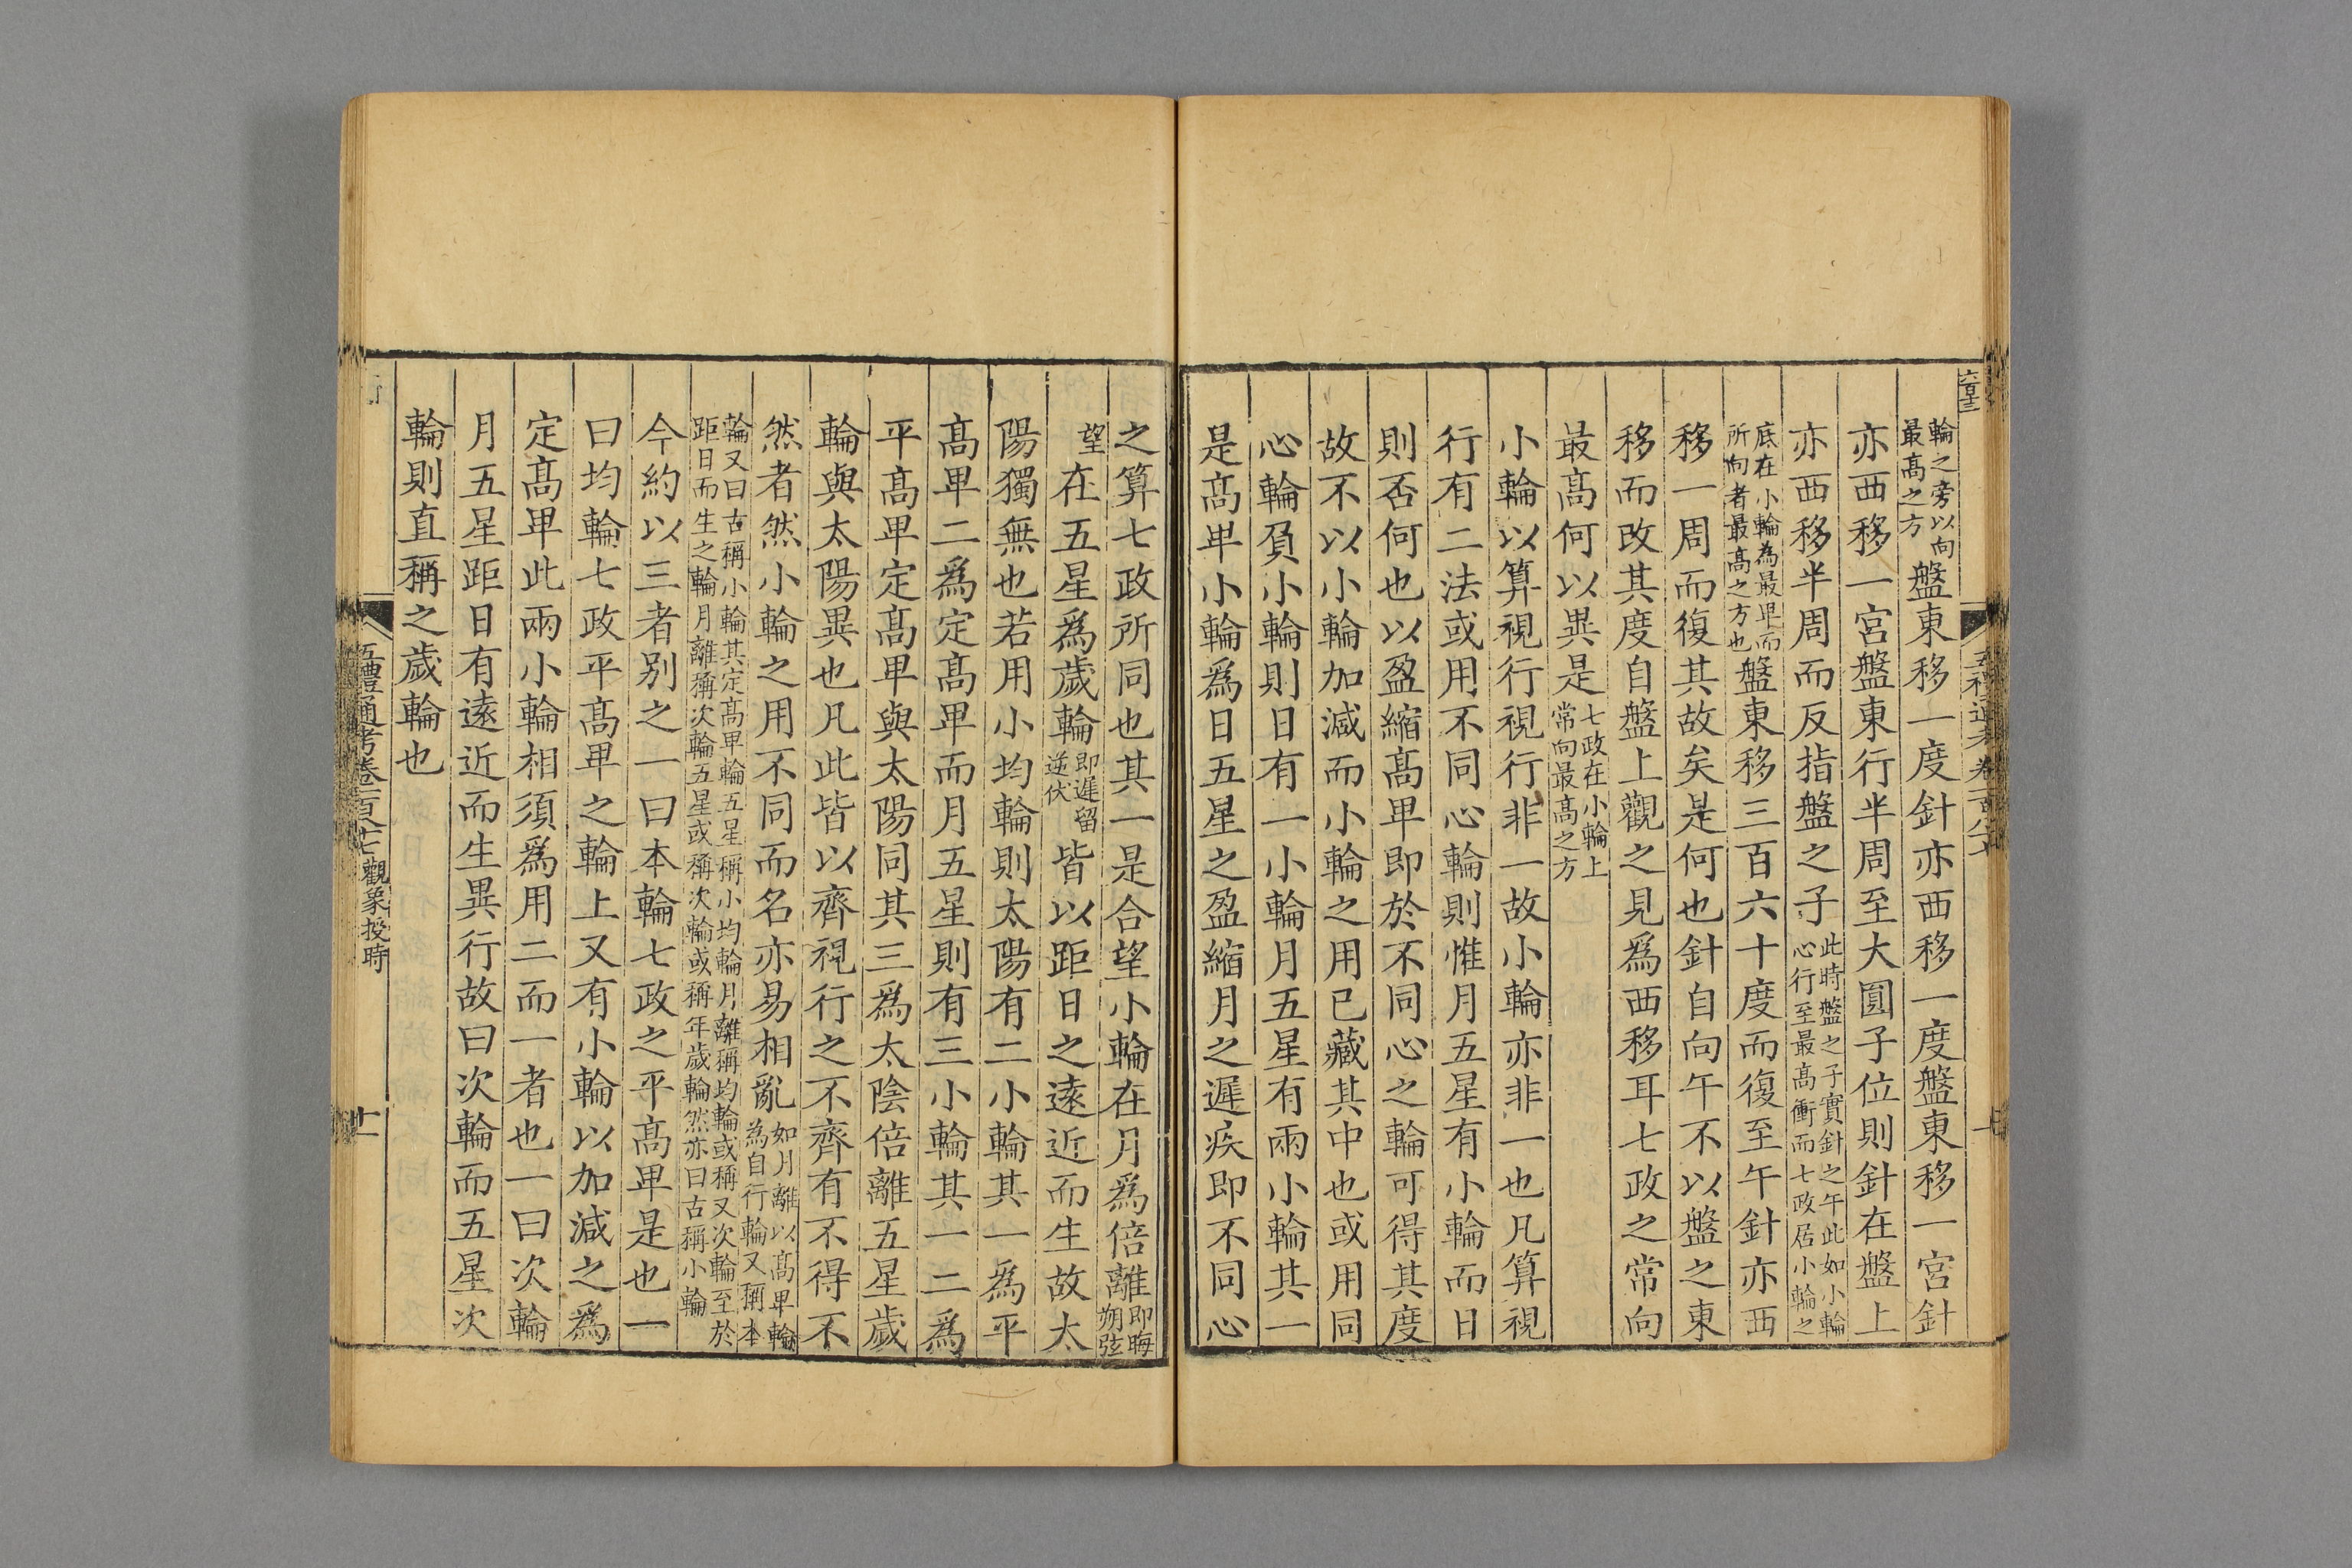 輪之旁以向最髙之方盤東移一度針亦西移一度盤東移一宫針
亦西移一宫盤東行半周至大圓子位則針在盤上
亦西移半周而反指盤之子此時盤之子實針之午此如小輪心行至最髙衝而七政居小輪之
底在小輪為最卑而所向者最髙之方也盤東移三百六十度而復至午針亦西
移一周而復其故矣是何也針自向午不以盤之東
移而改其度自盤上觀之見爲西移耳七政之常向
最髙何以異是七政在小輪上常向最髙之方
小輪以算視行視行非一故小輪亦非一也凡算視
行有二法或用不同心輪則惟月五星有小輪而日
則否何也以盈縮髙卑即於不同心之輪可得其度
故不以小輪加減而小輪之用已藏其中也或用同
心輪負小輪則日有一小輪月五星有兩小輪其一
是髙卑小輪爲日五星之盈縮月之遲疾即不同心
之算七政所同也其一是合望小輪在月爲倍離即晦朔弦
望在五星爲歲輪即遲留逆伏皆以距日之遠近而生故太
陽獨無也若用小均輪則太陽有二小輪其一爲平
髙卑二爲定髙卑而月五星則有三小輪其一二爲
平髙卑定髙卑與太陽同其三爲太陰倍離五星歲
輪與太陽異也凡此皆以齊視行之不齊有不得不
然者然小輪之用不同而名亦易相亂如月離以髙卑輪為自行輪又稱本
輪又曰古稱小輪其定髙卑輪五星稱小均輪月離稱均輪或稱又次輪至於距日而生之輪月離稱次輪五星或稱次輪或稱年歲輪然亦曰古稱小輪
今約以三者别之一曰本輪七政之平髙卑是也一
曰均輪七政平髙卑之輪上又有小輪以加減之爲
定髙卑此兩小輪相須爲用二而一者也一曰次輪
月五星距日有遠近而生異行故曰次輪而五星次
輪則直稱之歲輪也
五禮通考卷一百八十七觀象授時